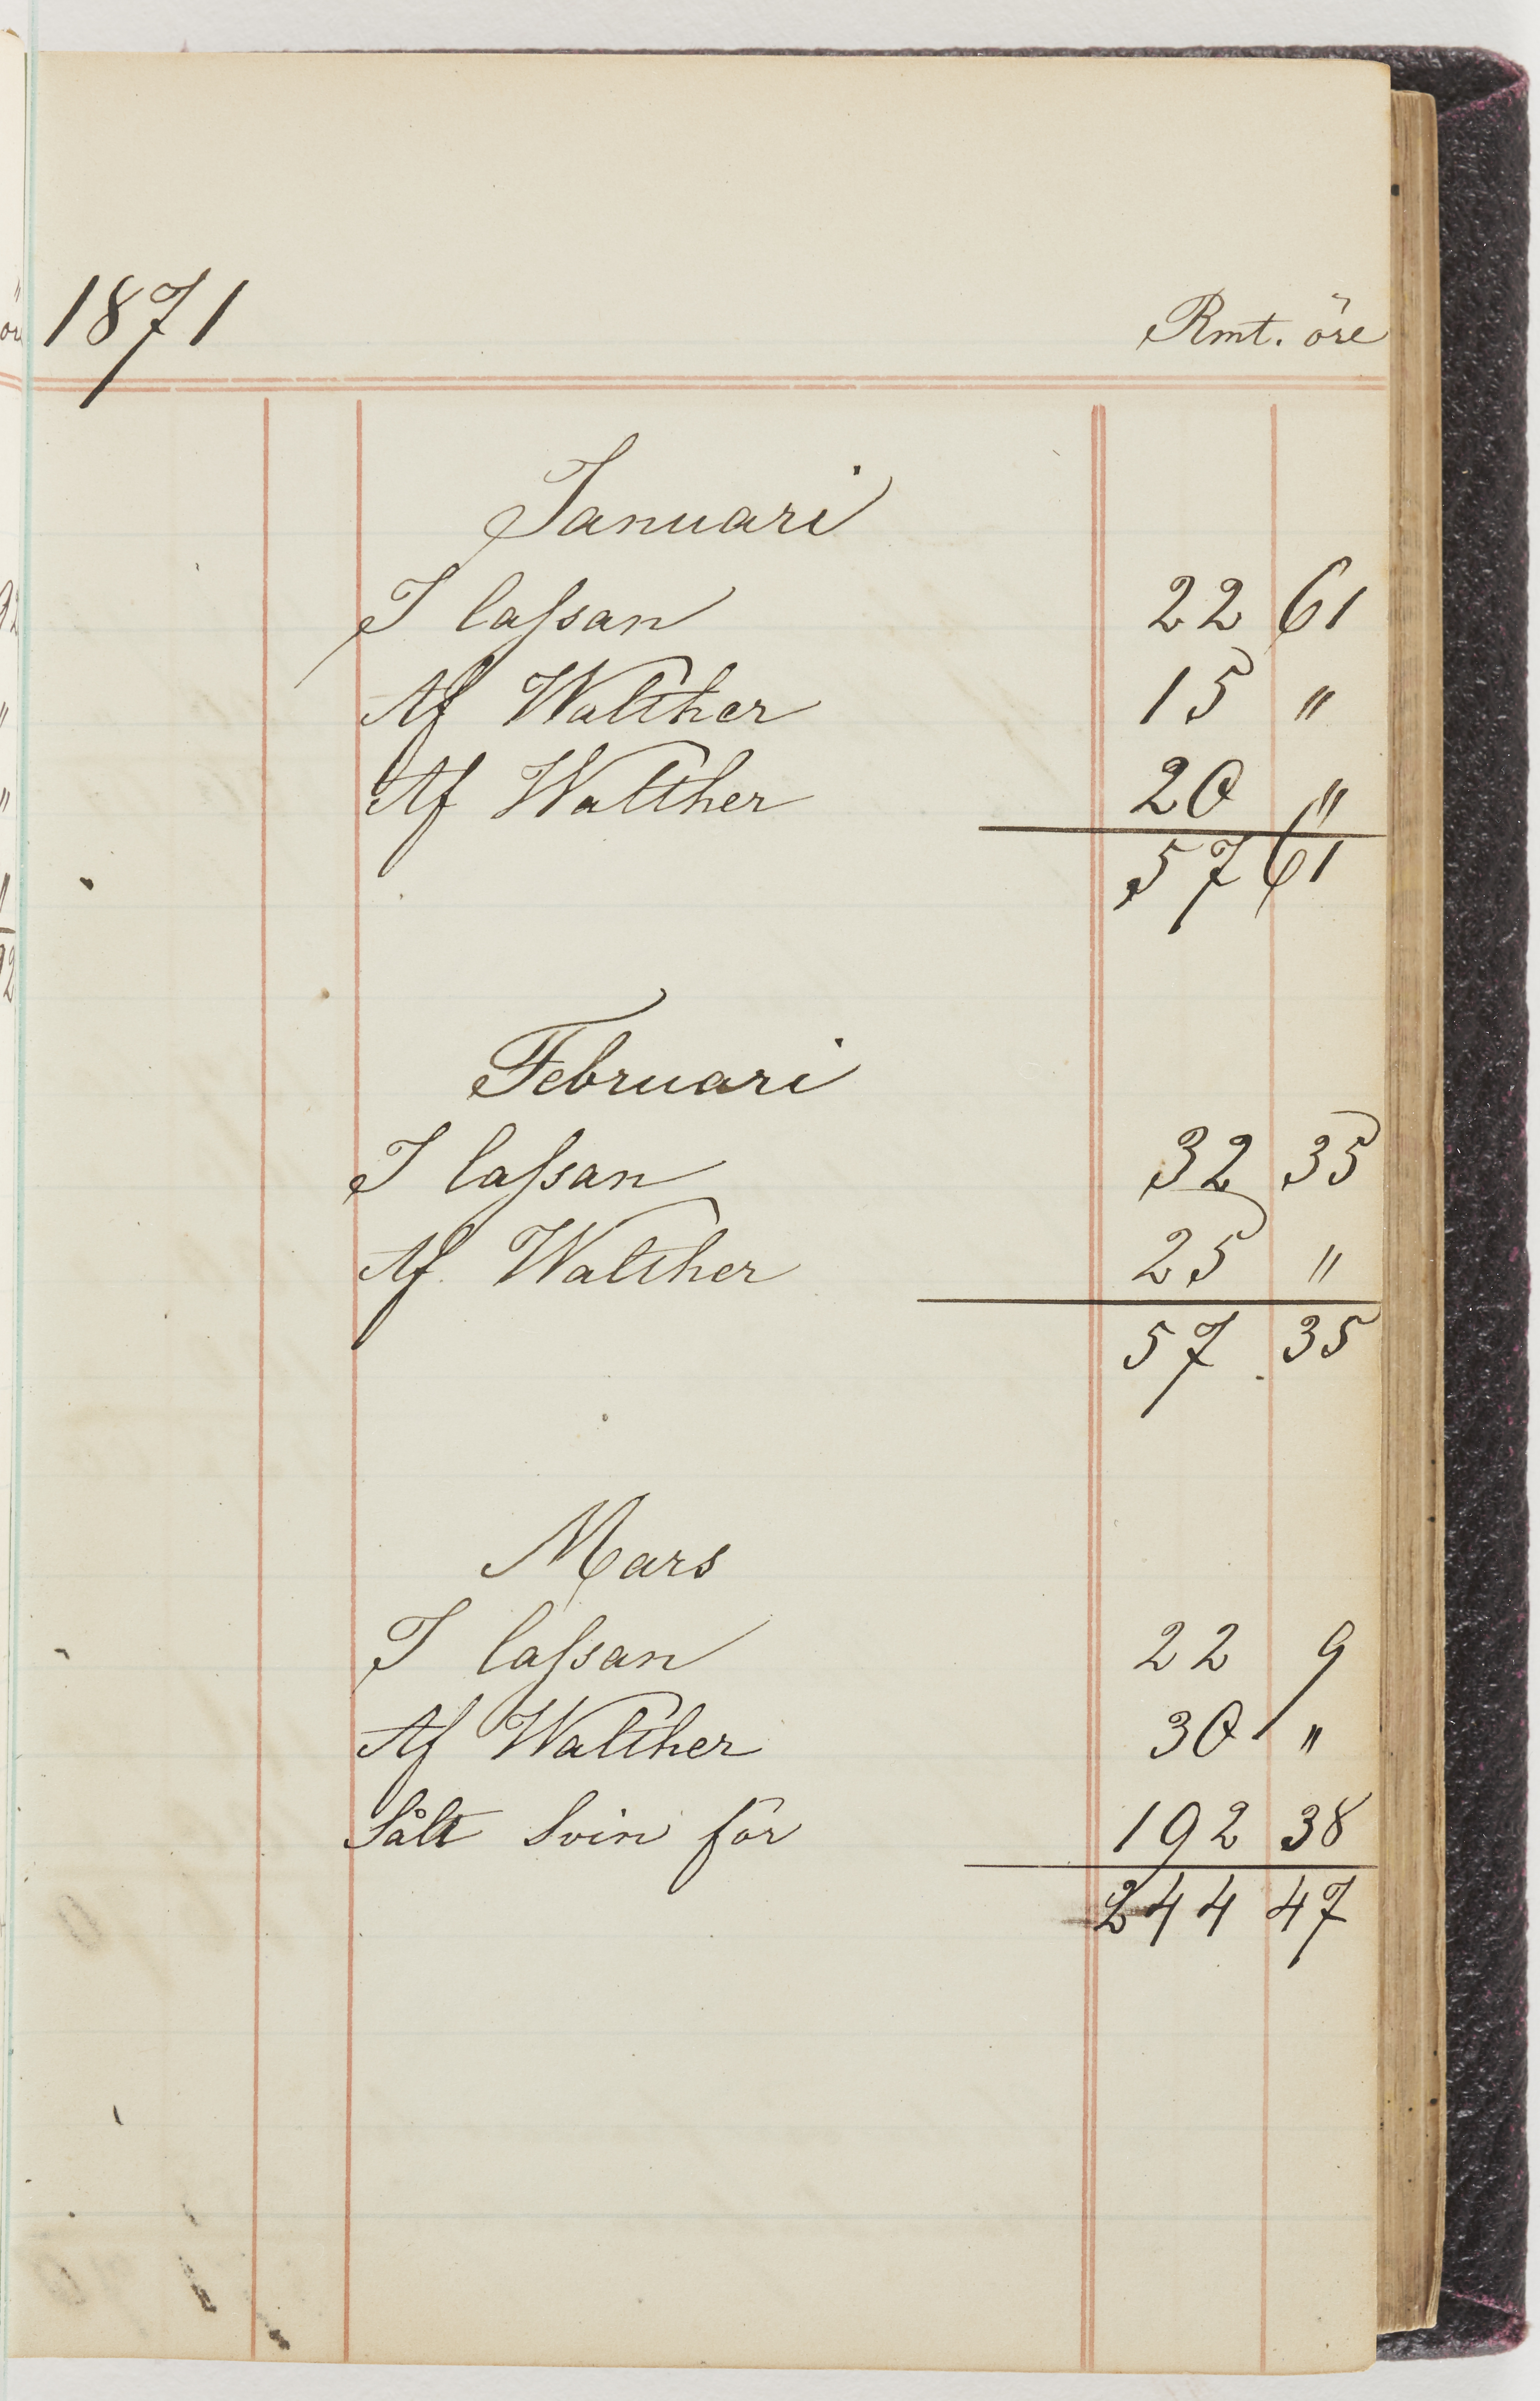 1871 Rmt. öre
Januari
I Cassan 22 61
Af Walther 15 "
Af Walther 20 "
57 61
Februari
I Cassan 32 35
Af Walther 25 "
57 35
Mars
I Cassan 22 9
Af Walther 30 "
Sålt Svin för 192 38
244 47